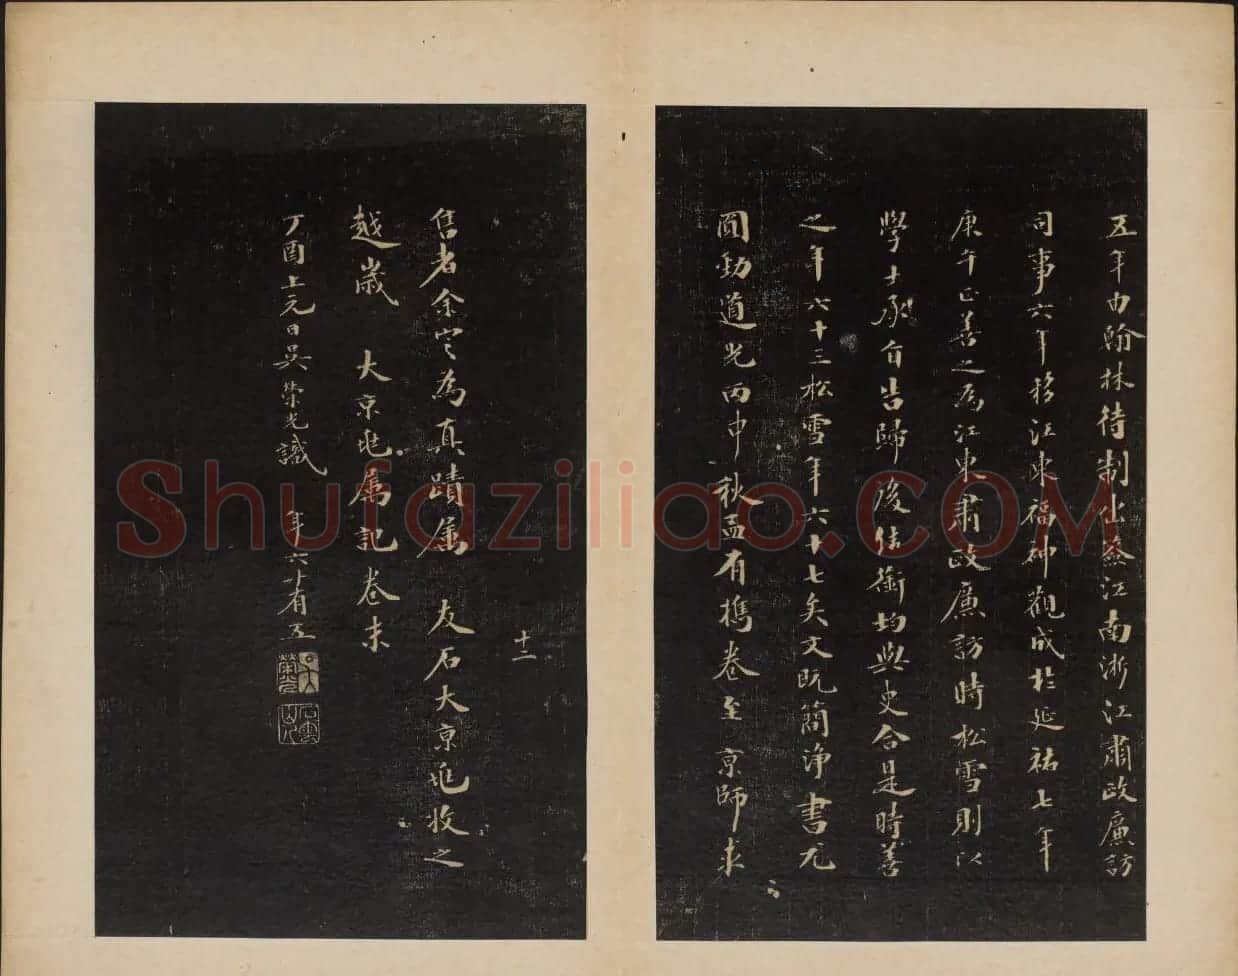 五年由翰林待制出僉江南浙江肅政廉訪
司事六年移江東福神觀成於延祐七年
庚午正善之為江東肅政廉訪時松雪則以
學士承旨告歸後結銜均與史合是時善
之年六十三松雪年六十七矣文既簡淨書尤
圓勁道光丙申秋孟有攜卷至京師求
十二
售者余定為真蹟屬 友石大京兆收之
越歲 大京兆屬記卷末
丁酉上元日吳榮光識 年六十有五
Shufaziliao.COM